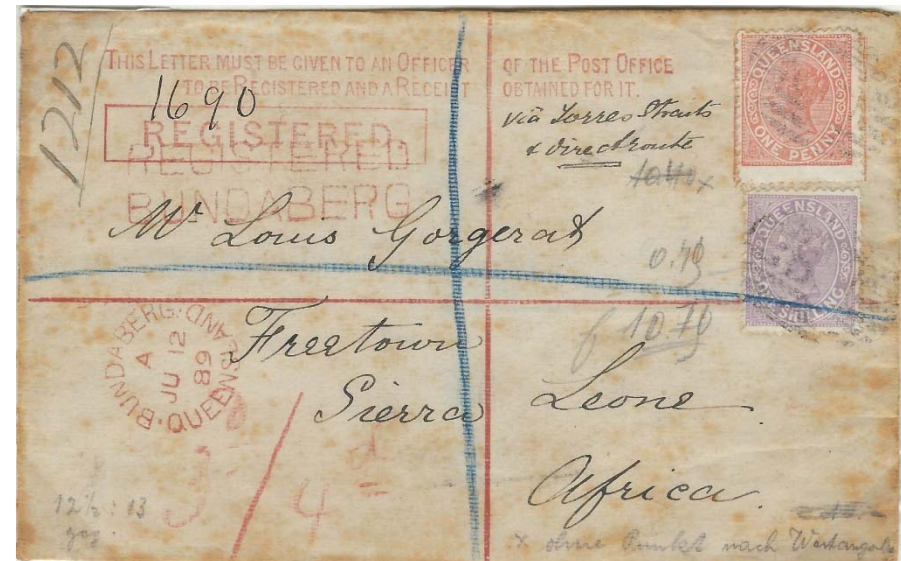 1212
THIS LETTER MUST BE GIVEN TO AN OFFICER OF THE POST OFFICE
TO BE REGISTERED AND A RECEIPT OBTAINED FOR IT.
1690
REGISTERED
REGISTERED
BUNDABERG
via Torres Straits
& direct route
QUEENSLAND
ONE PENNY
QUEENSLAND
ONE SHILLING
Mr Louis Gorgerat
0.49
10.79
Freetown
Sierra Leone
Africa
BUNDABERG·QUEENSLAND
A
JU 12
89
4d
12½ : 13
gez.
x ohne Punkt nach